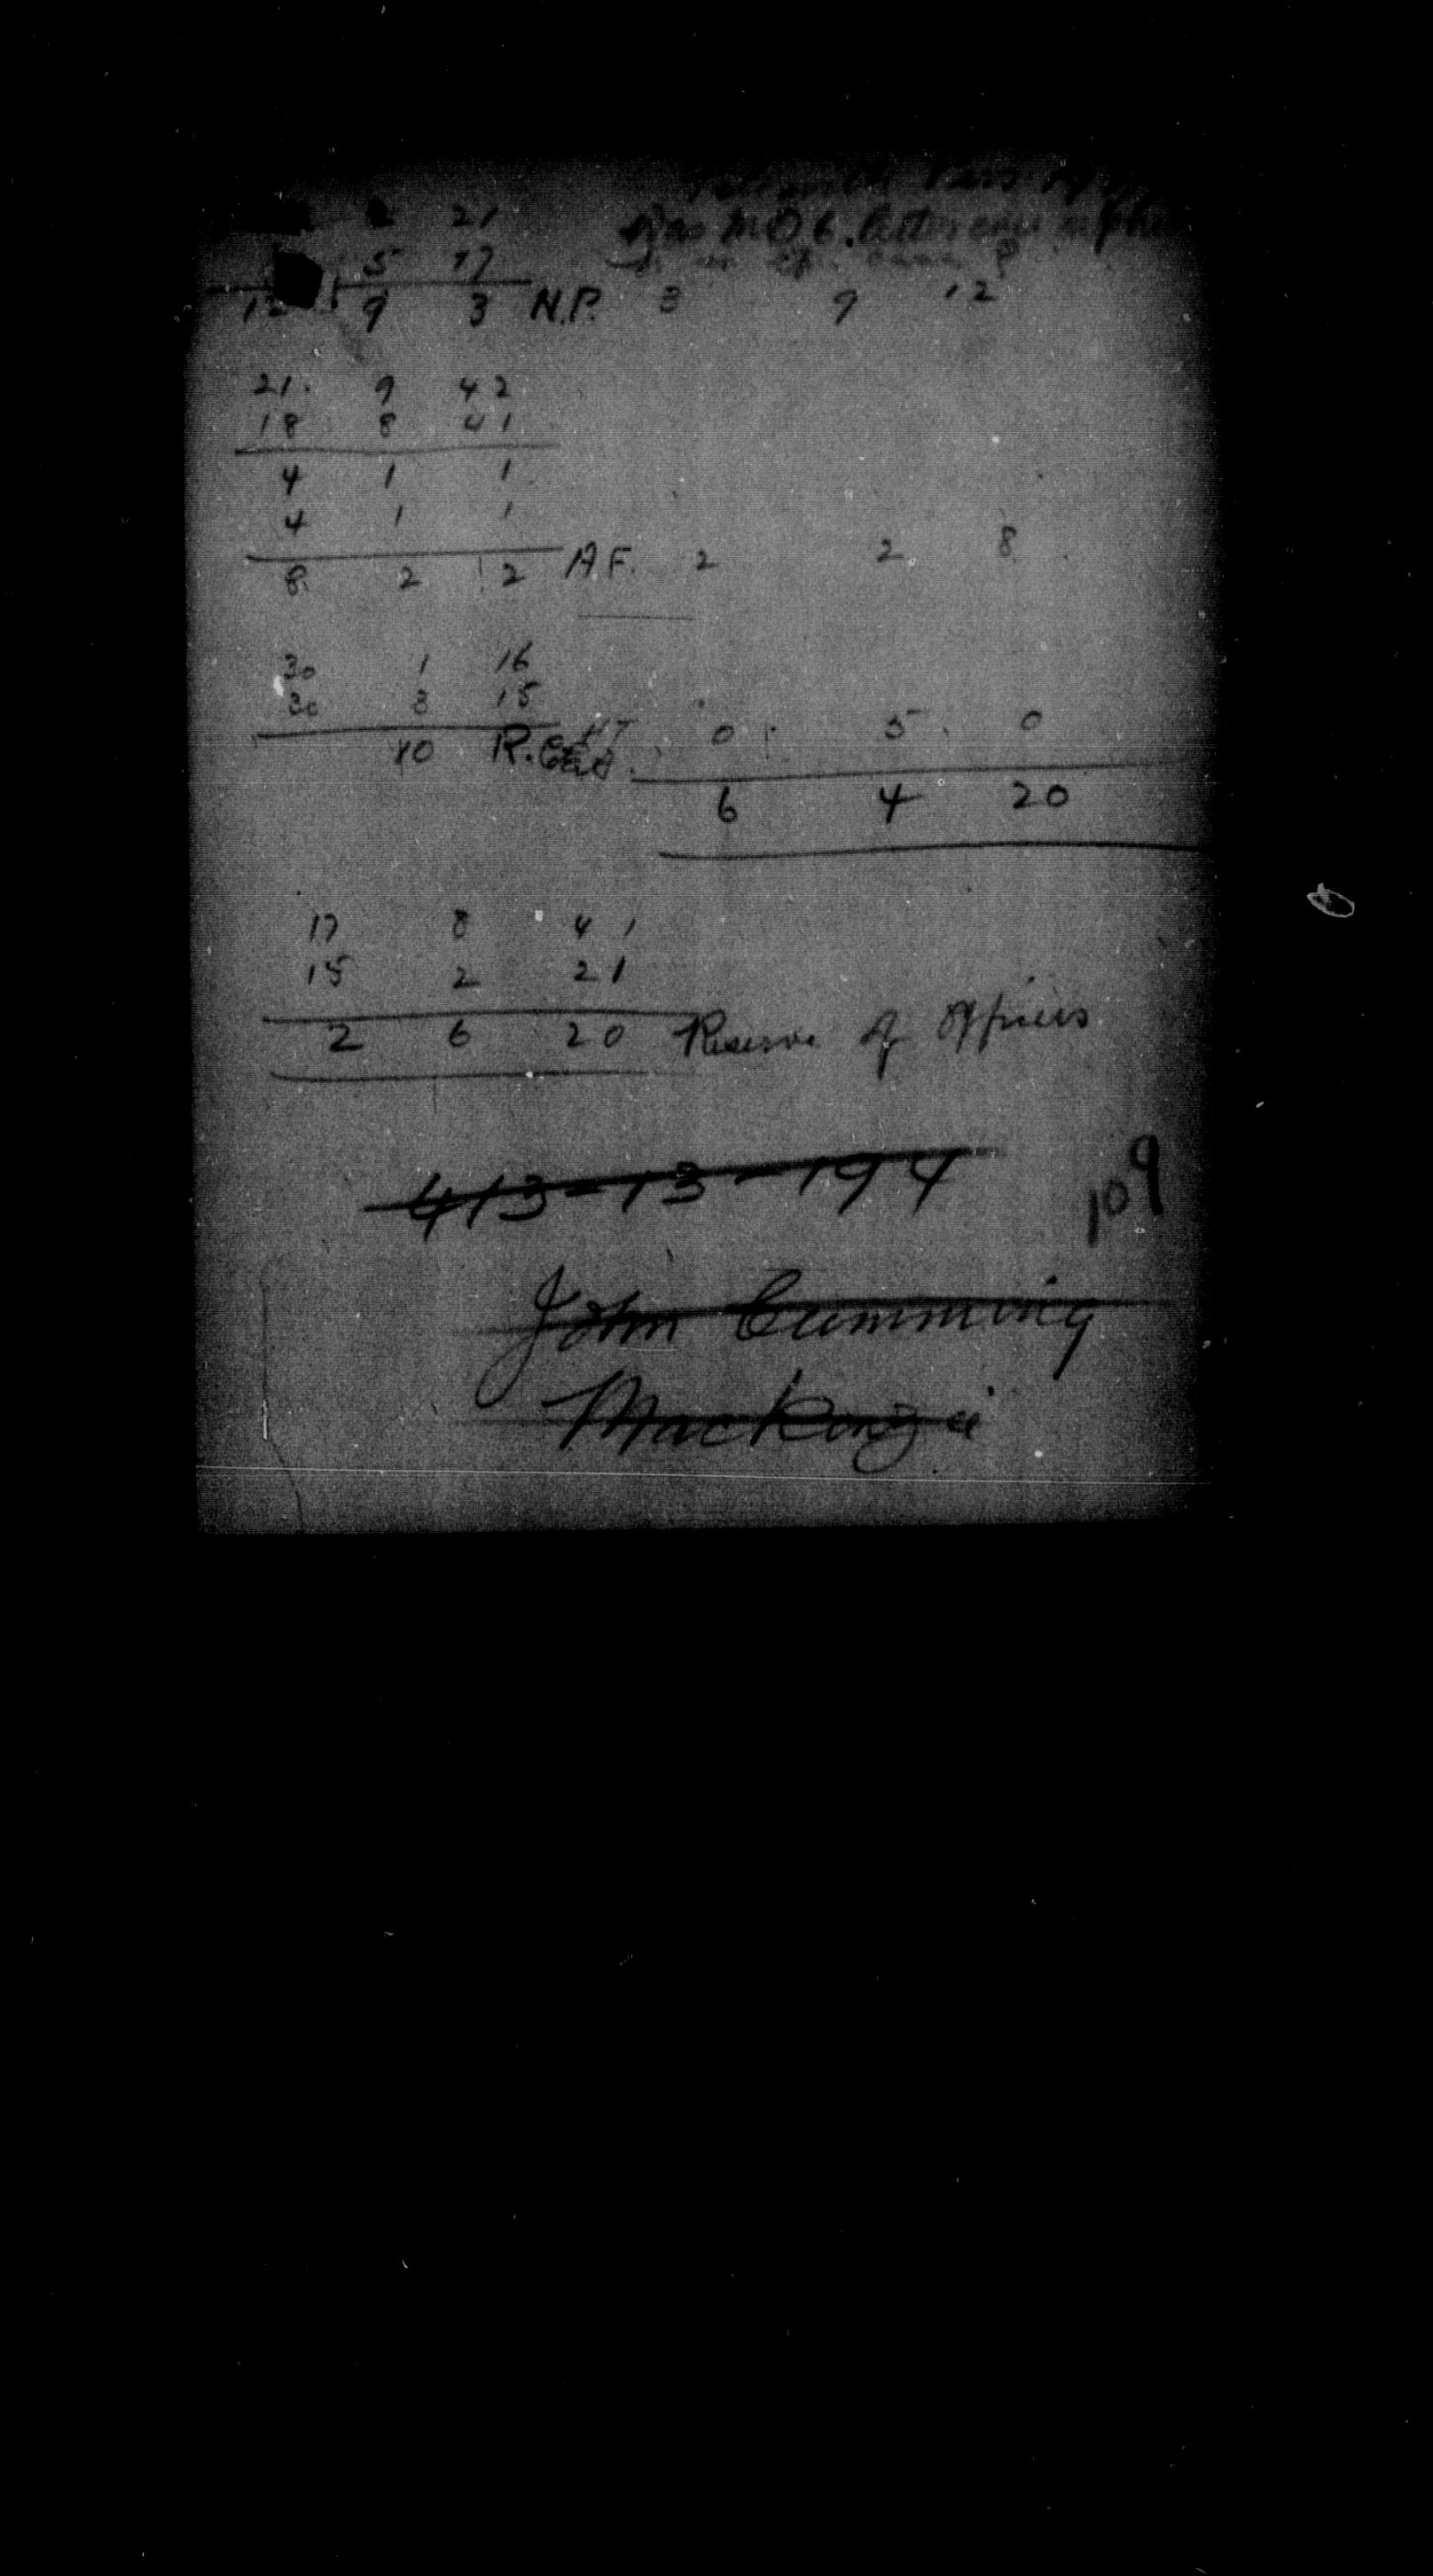 2 21
5 17
12 9 3 N.P. 3 9 12
Has M.O 6.
21. 9 42
18 8 41
4 1 1
4 1 1
8 2 2 A.F. 2 2 8
30 1 16
30 3 15
10 R. 0 5 0
6 4 20
17 8 41
15 2 21
2 6 20 Reserve of Officers
413-13-194
109
John Cumming
MacKenzie